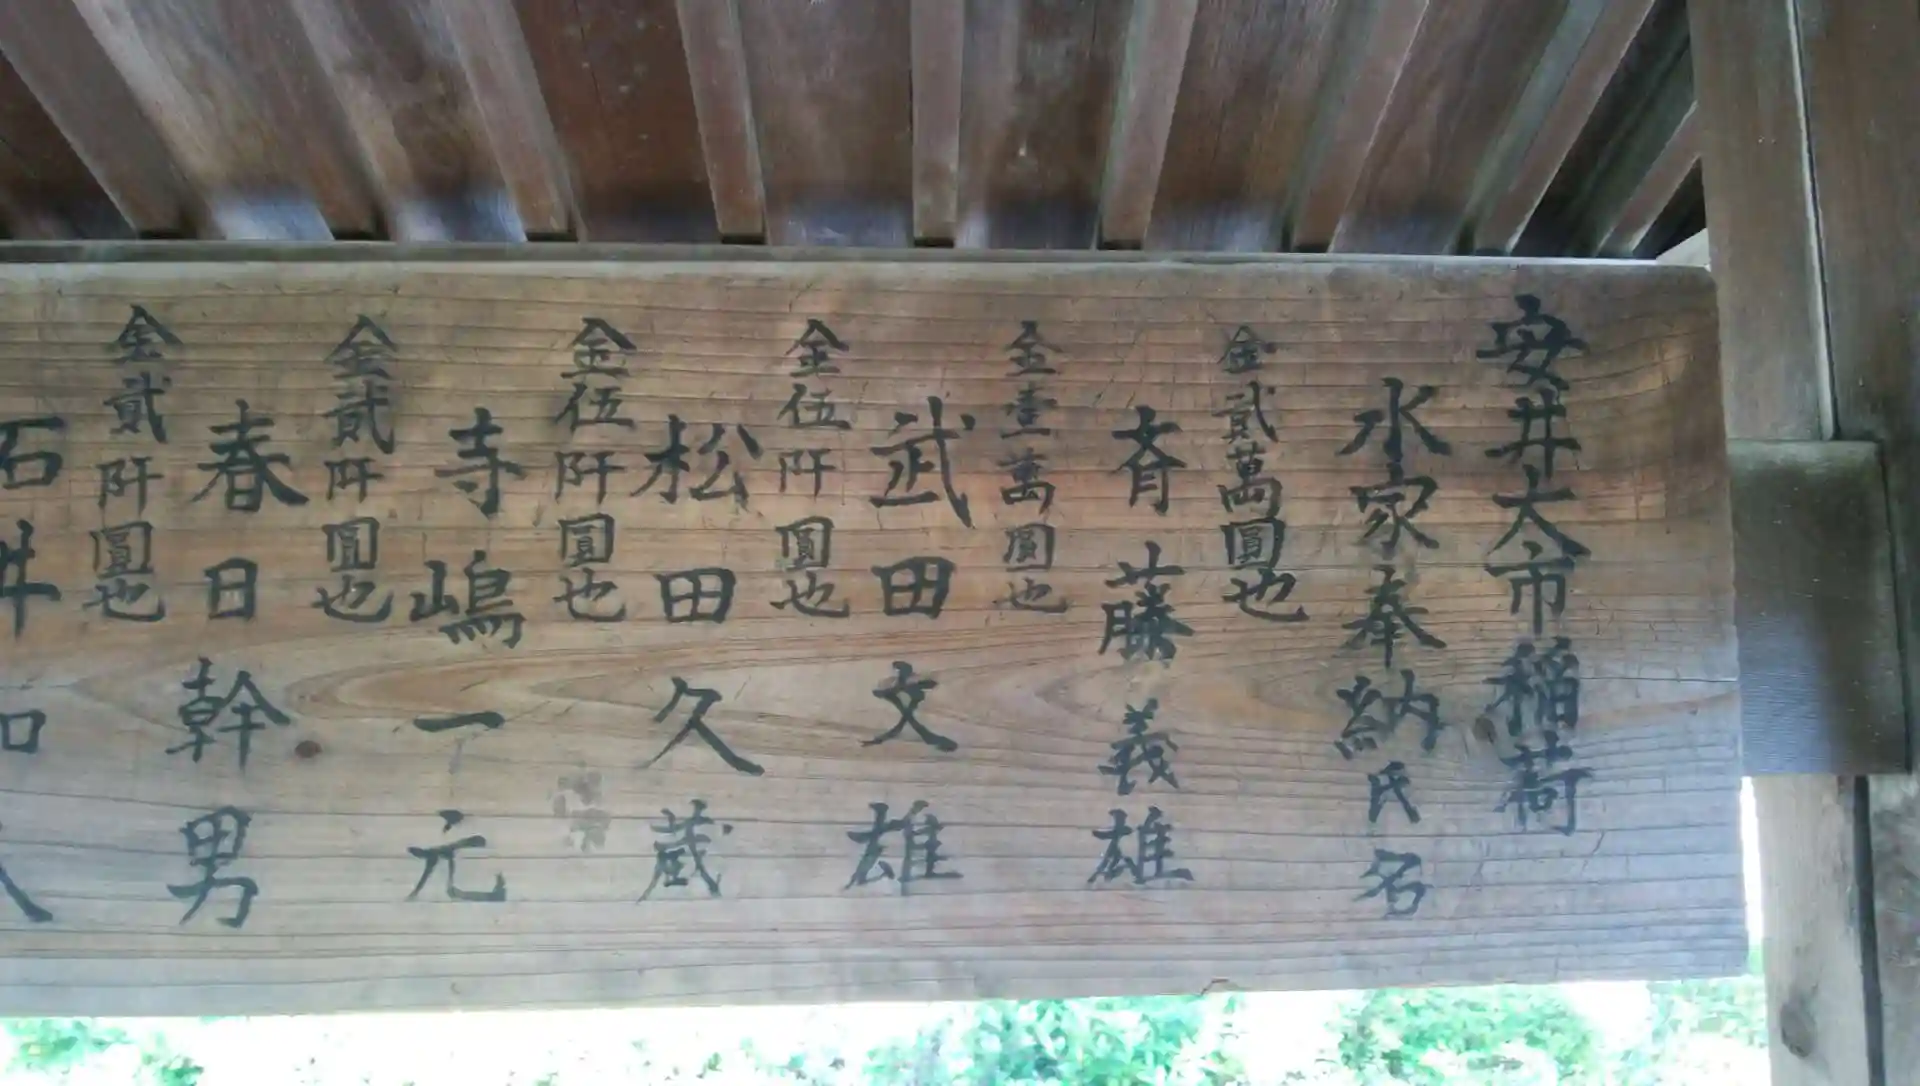 安井大市稲荷
水家奉納氏名
金貳萬圓也
斉藤義雄
金壹萬圓也
武田文雄
金伍阡圓也
松田久蔵
金伍阡圓也
寺嶋一元
金貳阡圓也
春日幹男
金貳阡圓也
石井和